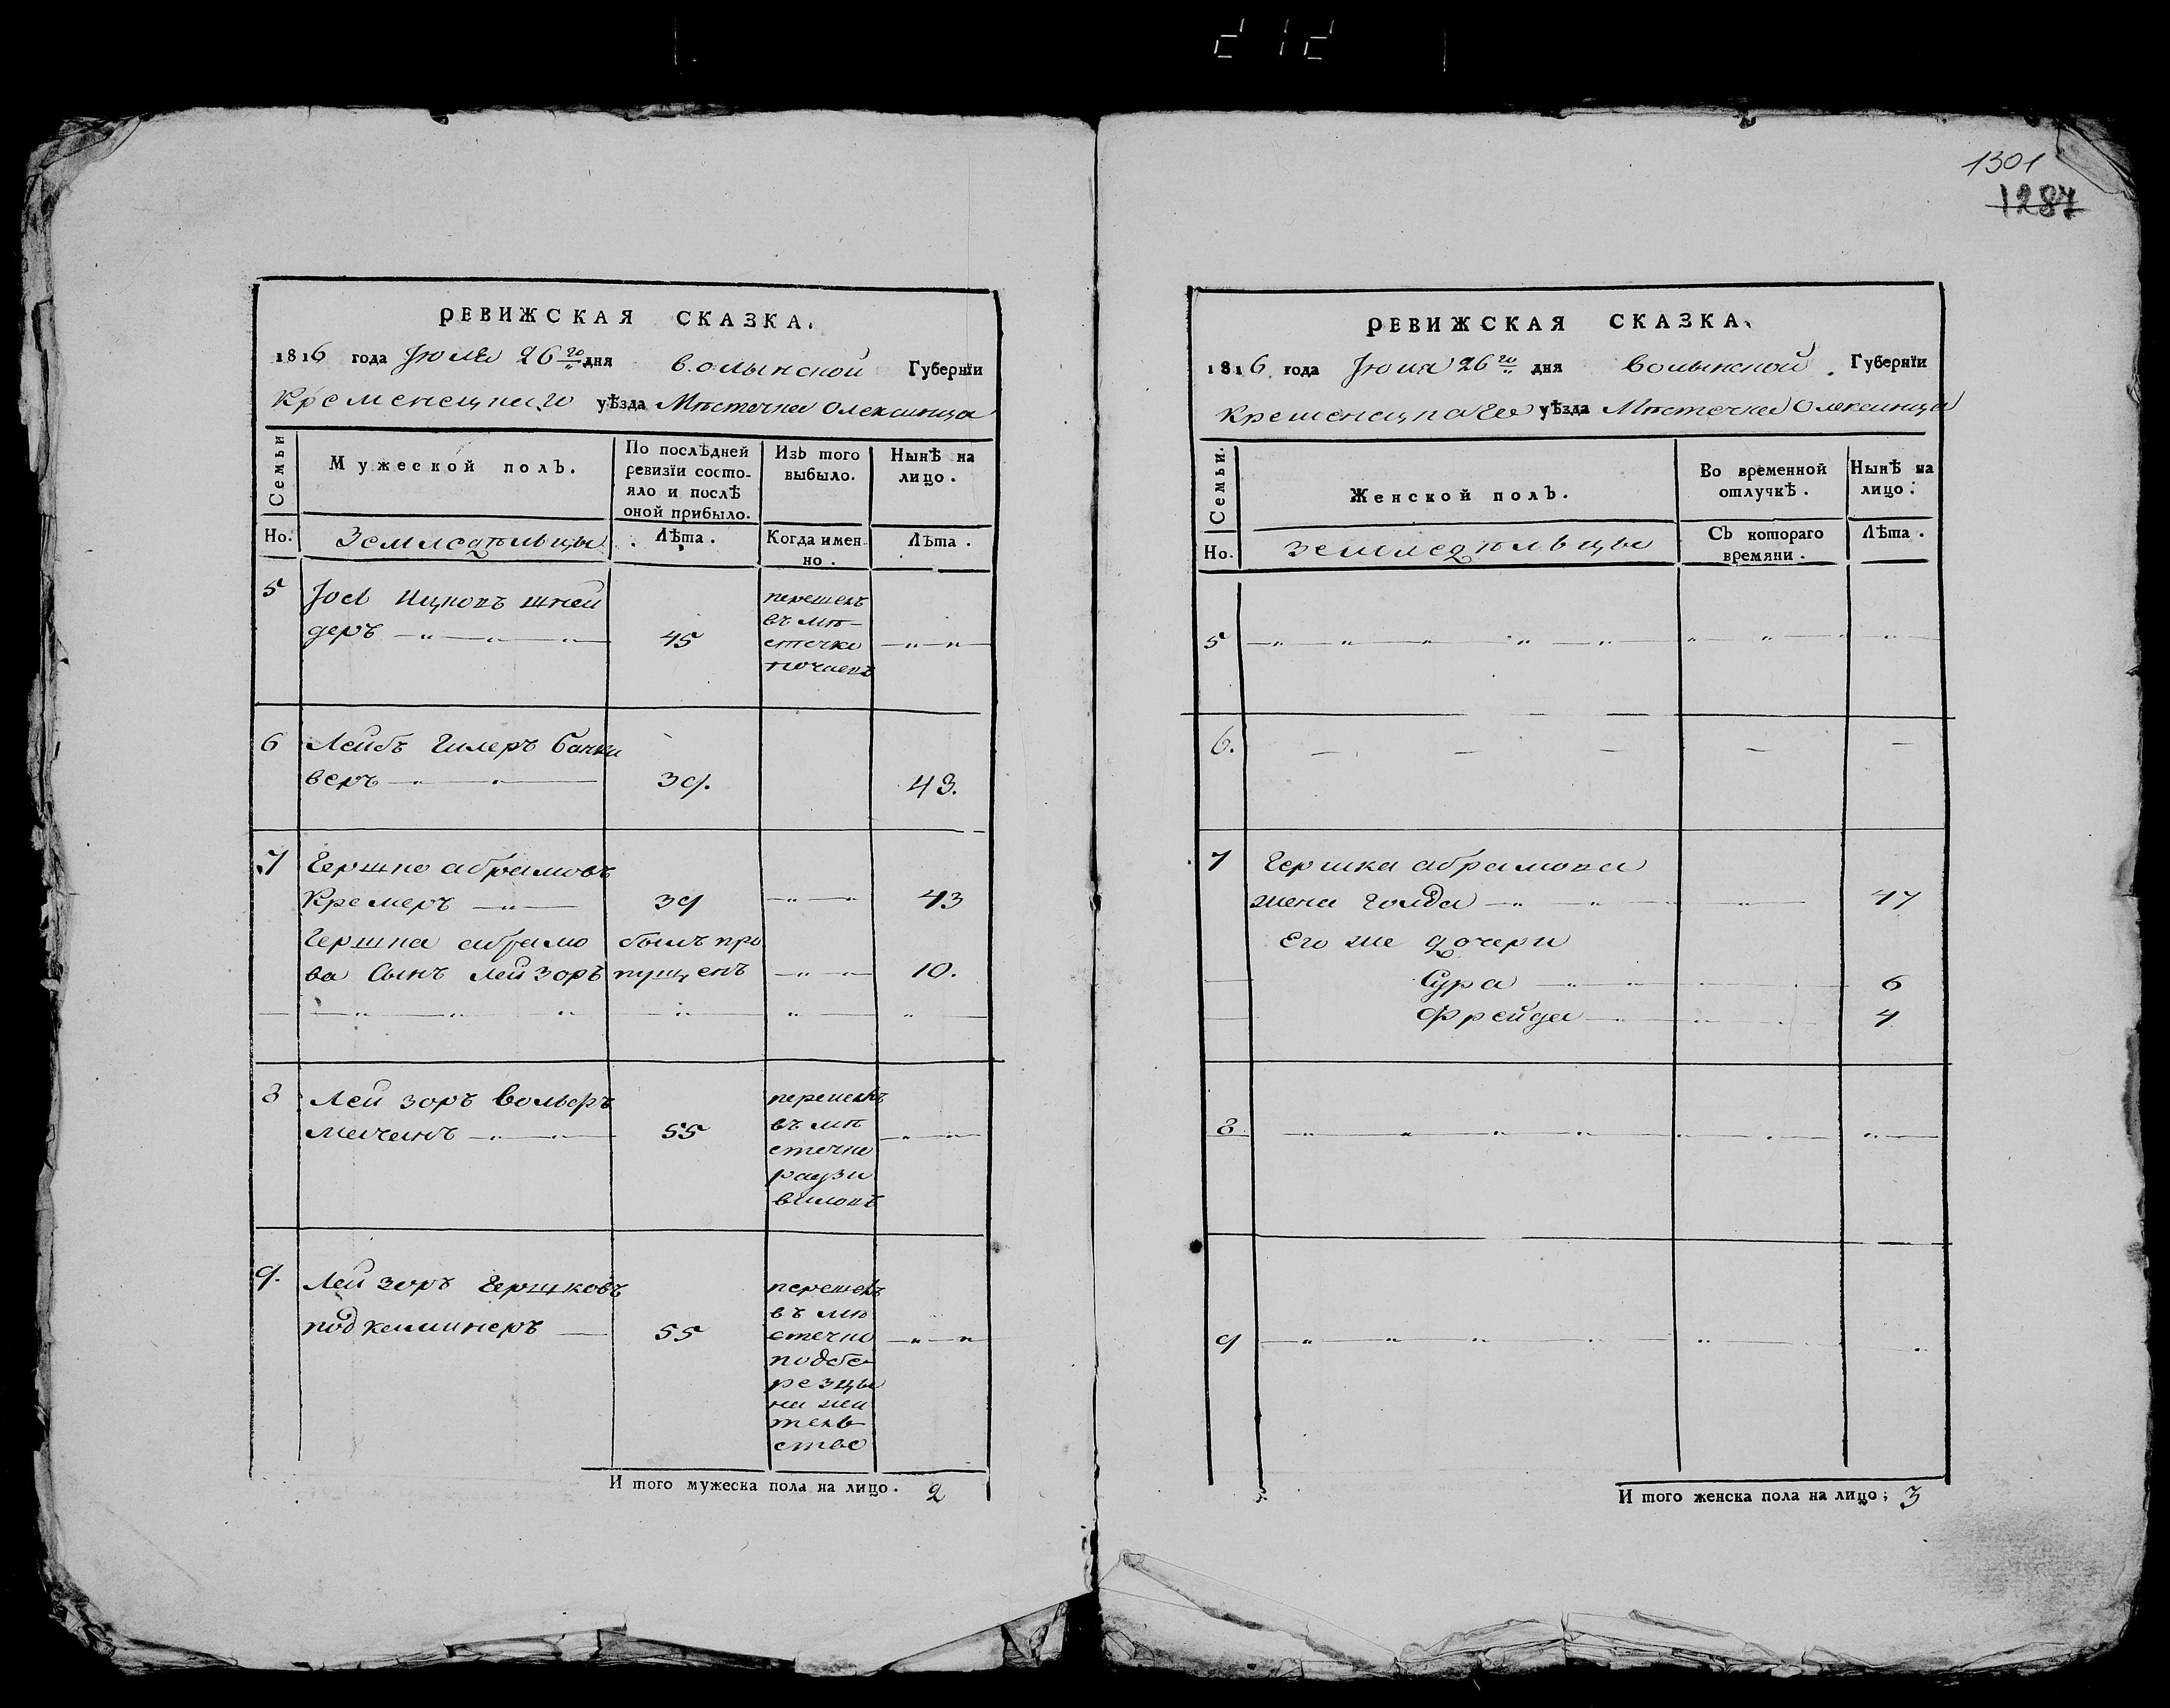 1301
1287
РЕВИЖСКАЯ СКАЗКА.
1816 года Июля 26го дня Волынской Губернїи
Кременецкаго уѣзда Мѣстечка Олексинца
Семьи
Мужеской полъ.
По послѣдней ревизїи состояло и послѣ оной прибыло.
Изъ того выбыло.
Нынѣ на лицо.
Но.
Земледѣльцы
Лѣта.
Когда именно.
Лѣта.
5 Јось Ицковъ Шней
деръ 45
перешелъ
въ мѣ
стечко
почаевъ
6 Лейбъ Гилеръ
веръ 39. 43.
7 Гершко абрамовъ
Кремеръ 39 43
Гершка абрамо былъ про
ва Сынъ Лейзоръ пущенъ 10.
8 Лейзоръ
55
перешелъ
въ мѣ
стечко
радзи
виловъ
9. Лейзоръ Гершковъ
55
перешелъ
въ мѣ
стечко
подбе
резцы
на жи
тель
ство
И того мужеска пола на лицо. 2
РЕВИЖСКАЯ СКАЗКА.
1816 года Июля 26го дня Волынской Губернїи
Кременецкаго уѣзда Мѣстечка Олексинца
Семьи.
Женской полъ.
Во временной отлучкѣ.
Нынѣ на лицо.
Но.
Земледѣльцы
Съ котораго времяни.
Лѣта.
5
6.
7 Гершка абрамова
жена Голда 47
Его же дочери
Сура 6
Фрейда 4
8
9
И того женска пола на лицо; 3